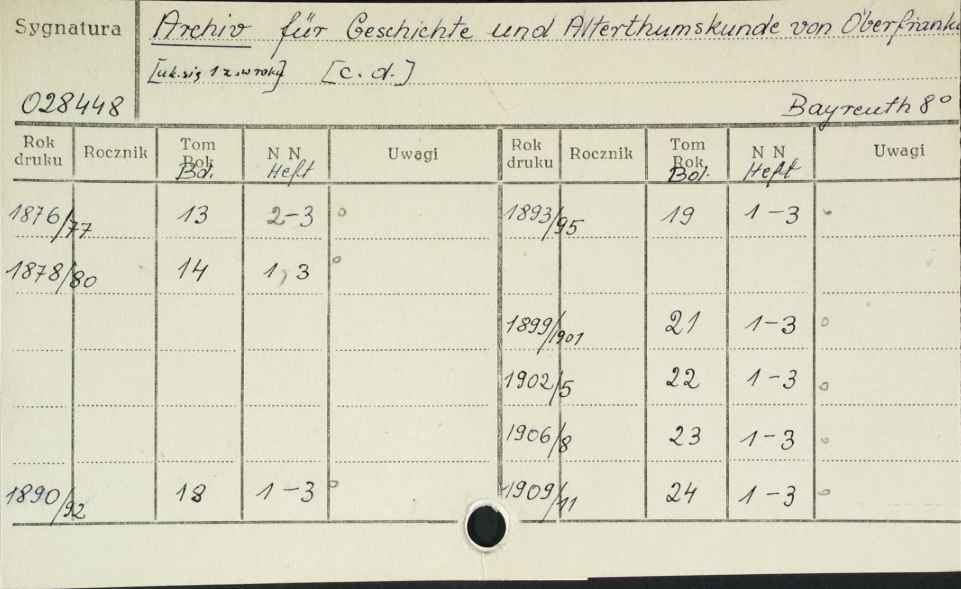 Sygnatura Archiv für Geschichte und Alterthumskunde von Oberfranke
[uk. się 1 z. w roku] [c. d.]
028448 Bayreuth 8°
Rok druku Rocznik Tom Rok Bd. N N Heft Uwagi Rok druku Rocznik Tom Rok Bd. N N Heft Uwagi
1876/77 13 2-3 1893/95 19 1-3
1878/80 14 1, 3
1899/1901 21 1-3
1902/5 22 1-3
1906/8 23 1-3
1890/92 18 1-3 1909/11 24 1-3